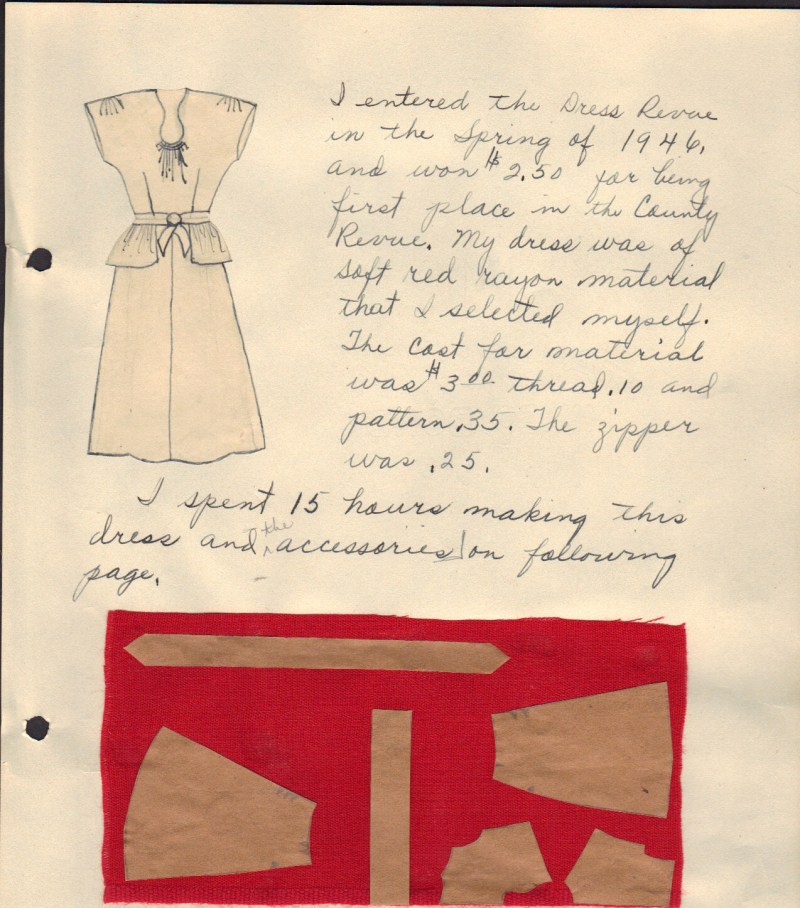 I entered the Dress Revue
in the Spring of 1946,
and won $2.50 for being
first place in the County
Revue. My dress was of
soft red rayon material
that I selected myself.
The cost for material
was $3.00 thread .10 and
pattern .35. The zipper
was .25.
I spent 15 hours making this
dress and the accessories on following
page.